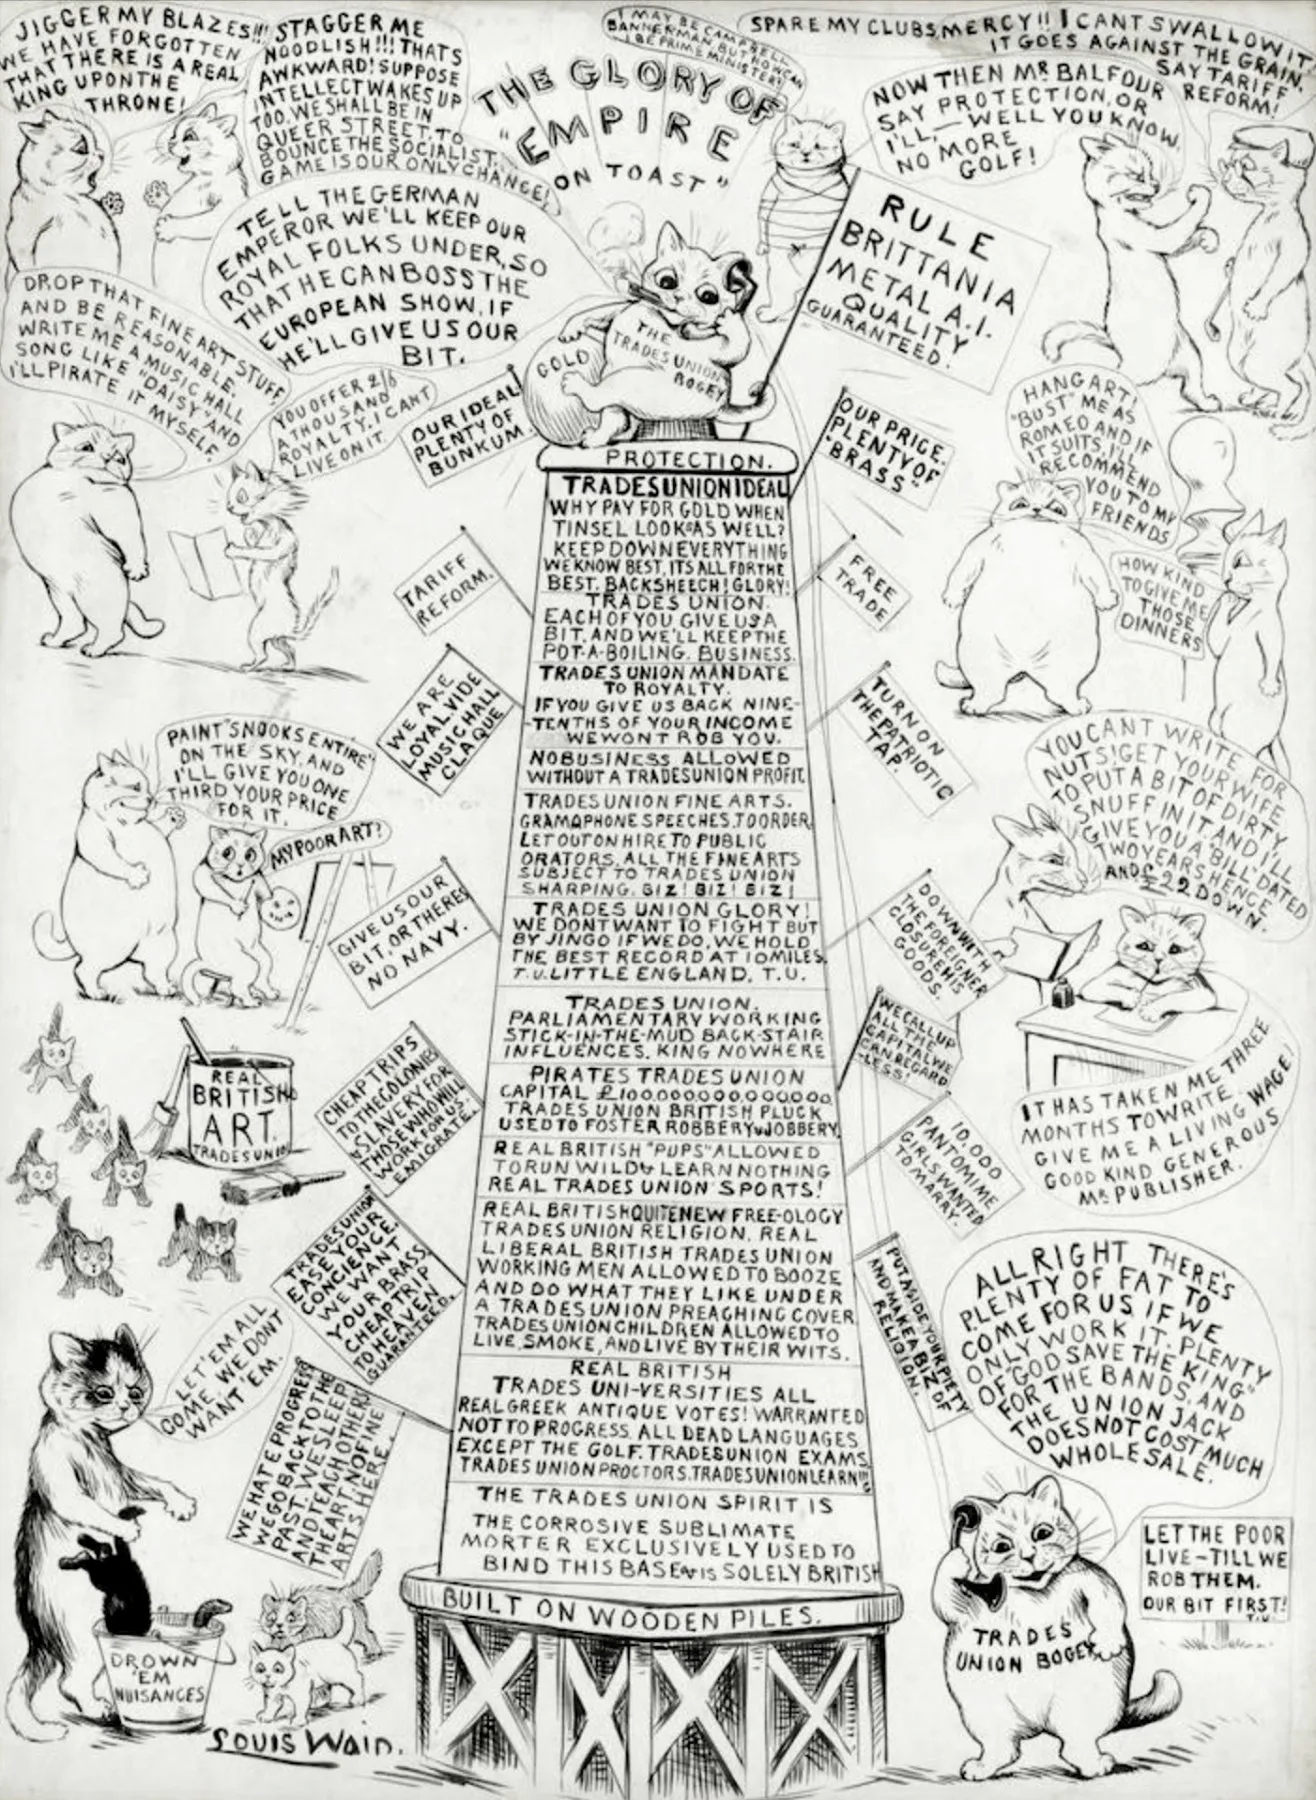 JIGGER MY BLAZES!!!
WE HAVE FORGOTTEN
THAT THERE IS A REAL
KING UPON THE
THRONE!
STAGGER ME
NOODLISH!!! THATS
AWKWARD! SUPPOSE
INTELLECT WAKES UP
TOO. WE SHALL BE IN
QUEER STREET. TO
BOUNCE THE SOCIALIST
GAME IS OUR ONLY CHANGE!
I MAY BE CAMPBELL
BANNERMAN, BUT HOW CAN
I BE PRIME MINISTER?
THE GLORY OF
"EMPIRE
ON TOAST"
SPARE MY CLUBS, MERCY!! I CANT SWALLOW IT
IT GOES AGAINST THE GRAIN.
SAY TARIFF
REFORM!
NOW THEN MR BALFOUR
SAY PROTECTION, OR
I'LL, — WELL YOU KNOW,
NO MORE
GOLF!
TELL THE GERMAN
EMPEROR WE'LL KEEP OUR
ROYAL FOLKS UNDER, SO
THAT HE CAN BOSS THE
EUROPEAN SHOW, IF
HE'LL GIVE US OUR
BIT.
RULE
BRITTANIA
METAL A.I.
QUALITY
GUARANTEED.
GOLD
THE
TRADES UNION
BOGEY
DROP THAT FINE ART STUFF
AND BE REASONABLE.
WRITE ME A MUSIC HALL
SONG LIKE "DAISY" AND
I'LL PIRATE IT MYSELF.
YOU OFFER 2/6
A THOUSAND
ROYALTY. I CANT
LIVE ON IT.
OUR IDEAL
PLENTY OF
BUNKUM
OUR PRICE.
PLENTY OF
"BRASS"
HANG ART!
"BUST" ME AS
ROMEO AND IF
IT SUITS, I'LL
RECOMMEND
YOU TO MY
FRIENDS
HOW KIND
TO GIVE ME
THOSE
DINNERS
PROTECTION.
TRADES UNION IDEAL
WHY PAY FOR GOLD WHEN
TINSEL LOOKS AS WELL?
KEEP DOWN EVERYTHING
WE KNOW BEST, ITS ALL FOR THE
BEST. BACKSHEECH! GLORY!
TRADES UNION.
EACH OF YOU GIVE US A
BIT, AND WE'LL KEEP THE
POT-A-BOILING. BUSINESS.
TRADES UNION MANDATE
TO ROYALTY.
IF YOU GIVE US BACK NINE-
-TENTHS OF YOUR INCOME
WE WONT ROB YOU.
NO BUSINESS ALLOWED
WITHOUT A TRADES UNION PROFIT.
TRADES UNION FINE ARTS.
GRAMOPHONE SPEECHES, TO ORDER,
LET OUT ON HIRE TO PUBLIC
ORATORS, ALL THE FINE ARTS
SUBJECT TO TRADES UNION
SHARPING. BIZ! BIZ! BIZ!
TRADES UNION GLORY!
WE DONT WANT TO FIGHT BUT
BY JINGO IF WE DO, WE HOLD
THE BEST RECORD AT 10 MILES.
T.U. LITTLE ENGLAND. T.U.
TRADES UNION.
PARLIAMENTARY WORKING
STICK-IN-THE-MUD BACK-STAIR
INFLUENCES. KING NOWHERE
PIRATES TRADES UNION
CAPITAL £100,000,000,000,000,
TRADES UNION BRITISH PLUCK
USED TO FOSTER ROBBERY & JOBBERY
REAL BRITISH "PUPS" ALLOWED
TO RUN WILD & LEARN NOTHING
REAL TRADES UNION SPORTS!
REAL BRITISH QUITE NEW FREE-OLOGY
TRADES UNION RELIGION. REAL
LIBERAL BRITISH TRADES UNION
WORKING MEN ALLOWED TO BOOZE
AND DO WHAT THEY LIKE UNDER
A TRADES UNION PREACHING COVER
TRADES UNION CHILDREN ALLOWED TO
LIVE, SMOKE, AND LIVE BY THEIR WITS.
REAL BRITISH
TRADES UNI-VERSITIES ALL
REAL GREEK ANTIQUE VOTES! WARRANTED
NOT TO PROGRESS. ALL DEAD LANGUAGES
EXCEPT THE GOLF. TRADES UNION EXAMS,
TRADES UNION PROCTORS. TRADES UNION LEARN!!!
THE TRADES UNION SPIRIT IS
THE CORROSIVE SUBLIMATE
MORTER EXCLUSIVELY USED TO
BIND THIS BASE & IS SOLELY BRITISH
BUILT ON WOODEN PILES.
TARIFF
REFORM.
FREE
TRADE
WE ARE
LOYAL VIDE
MUSIC HALL
CLAQUE
TURN ON
THE PATRIOTIC
TAP.
PAINT "SNOOKS ENTIRE"
ON THE SKY, AND
I'LL GIVE YOU ONE
THIRD YOUR PRICE
FOR IT.
MY POOR ART!
GIVE US OUR
BIT, OR THERES
NO NAVY.
YOU CANT WRITE FOR
NUTS! GET YOUR WIFE
TO PUT A BIT OF DIRTY
SNUFF IN IT AND I'LL
GIVE YOU A "BILL" DATED
TWO YEARS HENCE
AND £22 DOWN.
DOWN WITH
THE FOREIGNER
CLOSURE HIS
GOODS.
WE CALL UP
ALL THE
CAPITAL WE
CAN REGARD
-LESS!
IT HAS TAKEN ME THREE
MONTHS TO WRITE.
GIVE ME A LIVING WAGE!
GOOD KIND GENEROUS
MR PUBLISHER.
REAL
BRITISH
ART.
TRADES UNION
CHEAP TRIPS
TO THE COLONIES
& SLAVERY FOR
THOSE WHO WILL
WORK FOR US.
EMIGRATE.
10,000
PANTOMIME
GIRLS WANTED
TO MARRY.
TRADES UNION
EASE YOUR
CONCIENCE.
WE WANT
YOUR BRASS.
CHEAP TRIP
TO HEAVEN
GUARANTEED.
PUT ASIDE YOUR PIETY
AND MAKE A BIZ OF
RELIGION.
ALL RIGHT THERE'S
PLENTY OF FAT TO
COME FOR US IF WE
ONLY WORK IT. PLENTY
OF "GOD SAVE THE KING"
FOR THE BANDS, AND
THE UNION JACK
DOES NOT COST MUCH
WHOLESALE.
LET 'EM ALL
COME, WE DONT
WANT 'EM.
WE HATE PROGRESS
WE GO BACK TO THE
PAST. WE SLEEP
AND TEACH OTHERS
THE ART. NO FINE
ARTS HERE.
LET THE POOR
LIVE – TILL WE
ROB THEM.
OUR BIT FIRST!
T.U.
TRADES
UNION BOGEY
DROWN
'EM
NUISANCES
Louis Wain.